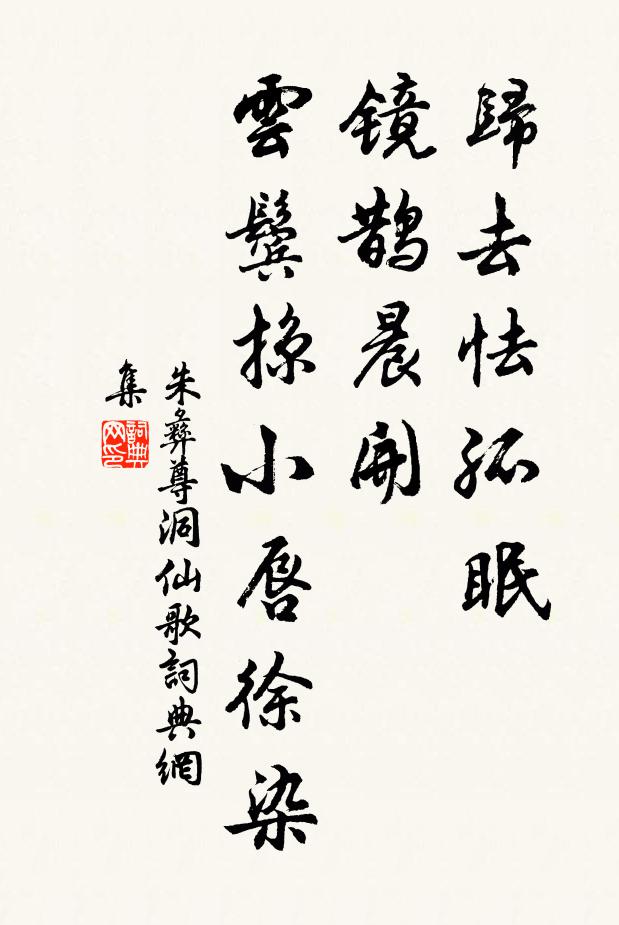 歸去怯孤眠
鏡鵲晨開
雲鬢掠小唇徐染
朱彝尊洞仙歌詞典網
集
詞典
网印